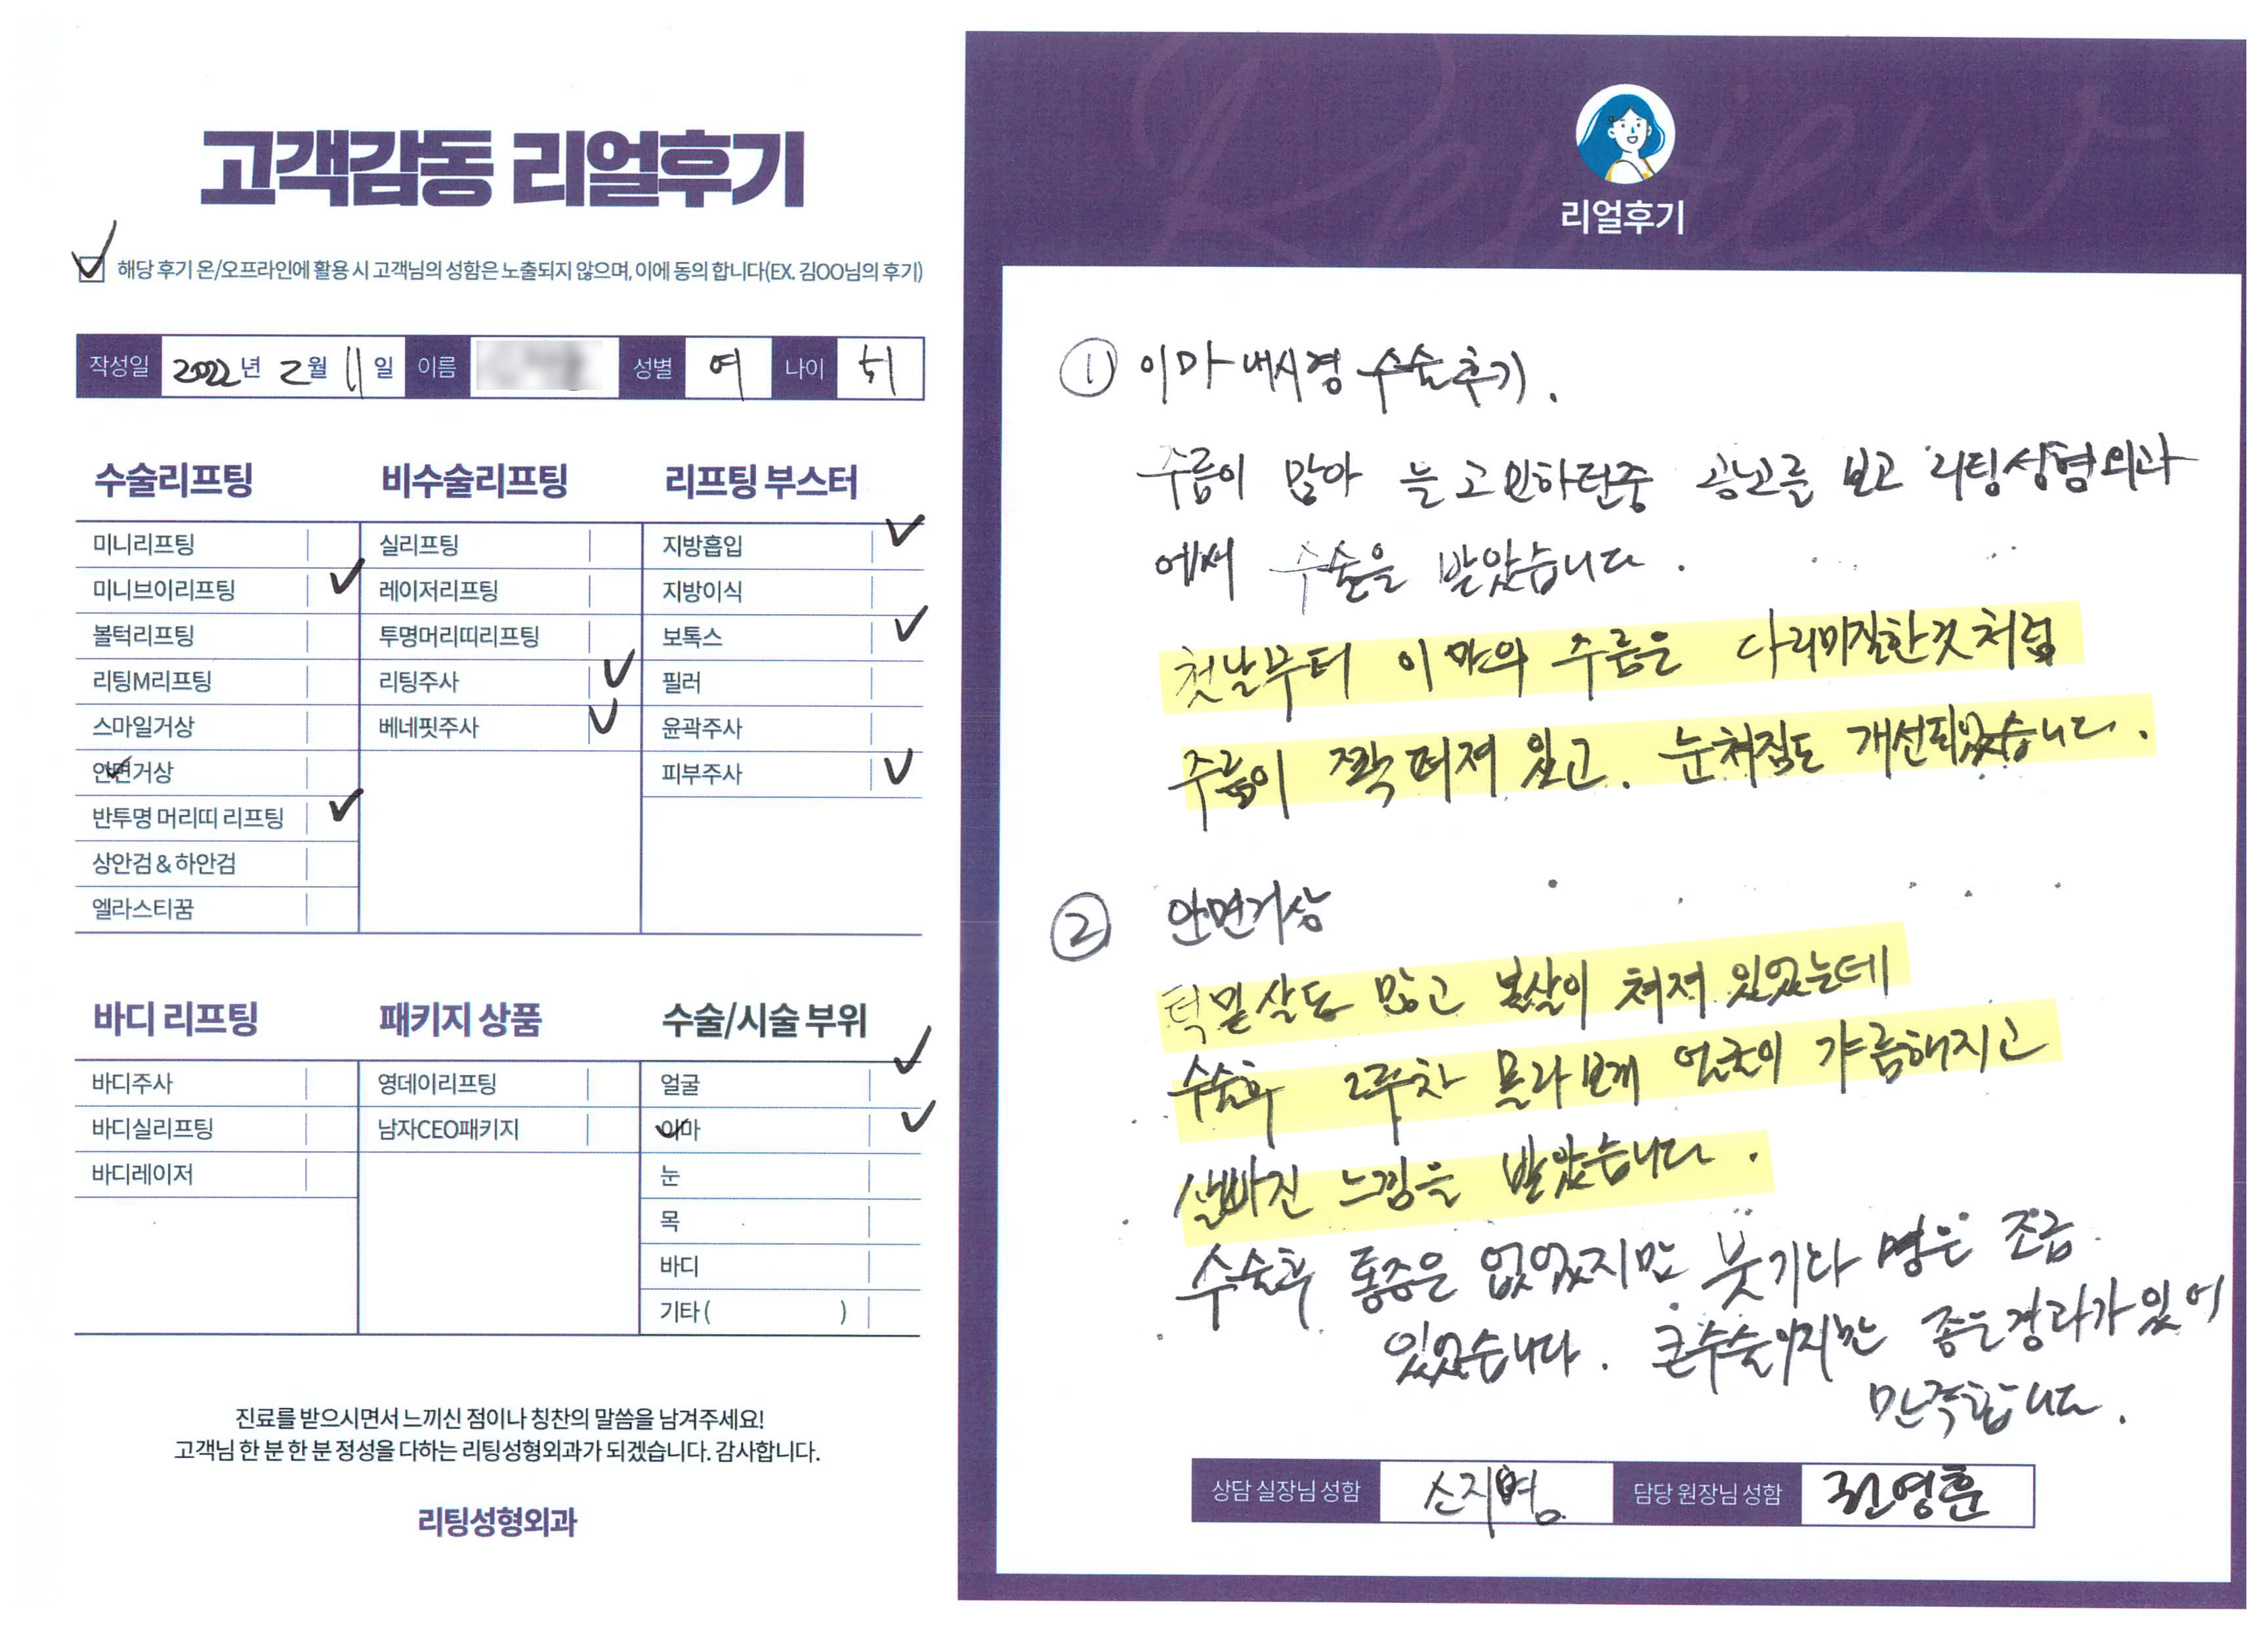 고객감동 리얼후기
해당 후기 온/오프라인에 활용 시 고객님의 성함은 노출되지 않으며, 이에 동의 합니다(EX. 김OO님의 후기)
작성일 2022년 2월 11일 이름 성별 여 나이
수술리프팅
미니리프팅
미니브이리프팅
볼턱리프팅
리팅M리프팅
스마일거상
안면거상
반투명 머리띠 리프팅
상안검 & 하안검
엘라스티꿈
비수술리프팅
실리프팅
레이저리프팅
투명머리띠리프팅
리팅주사
베네핏주사
리프팅 부스터
지방흡입
지방이식
보톡스
필러
윤곽주사
피부주사
바디 리프팅
바디주사
바디실리프팅
바디레이저
패키지 상품
영데이리프팅
남자CEO패키지
수술/시술 부위
얼굴
이마
눈
목
바디
기타 ( )
진료를 받으시면서 느끼신 점이나 칭찬의 말씀을 남겨주세요!
고객님 한 분 한 분 정성을 다하는 리팅성형외과가 되겠습니다. 감사합니다.
리팅성형외과
Review
리얼후기
① 이마 내시경 수술후기.
주름이 많아 늘 고민하던중 광고를 보고 리팅성형외과
에서 수술을 받았습니다.
첫날부터 이마의 주름은 다리미질한것 처럼
주름이 쫙 펴져 있고. 눈쳐짐도 개선되었습니다.
② 안면거상
턱밑살도 많고 볼살이 쳐져 있었는데
수술후 2주차 몰라보게 얼굴이 갸름해지고
살빠진 느낌을 받았습니다.
수술후 통증은 없었지만 붓기와 멍은 조금
있었습니다. 큰수술이지만 좋은결과가 있어
만족합니다.
상담 실장님 성함 신지명 담당 원장님 성함 전영훈